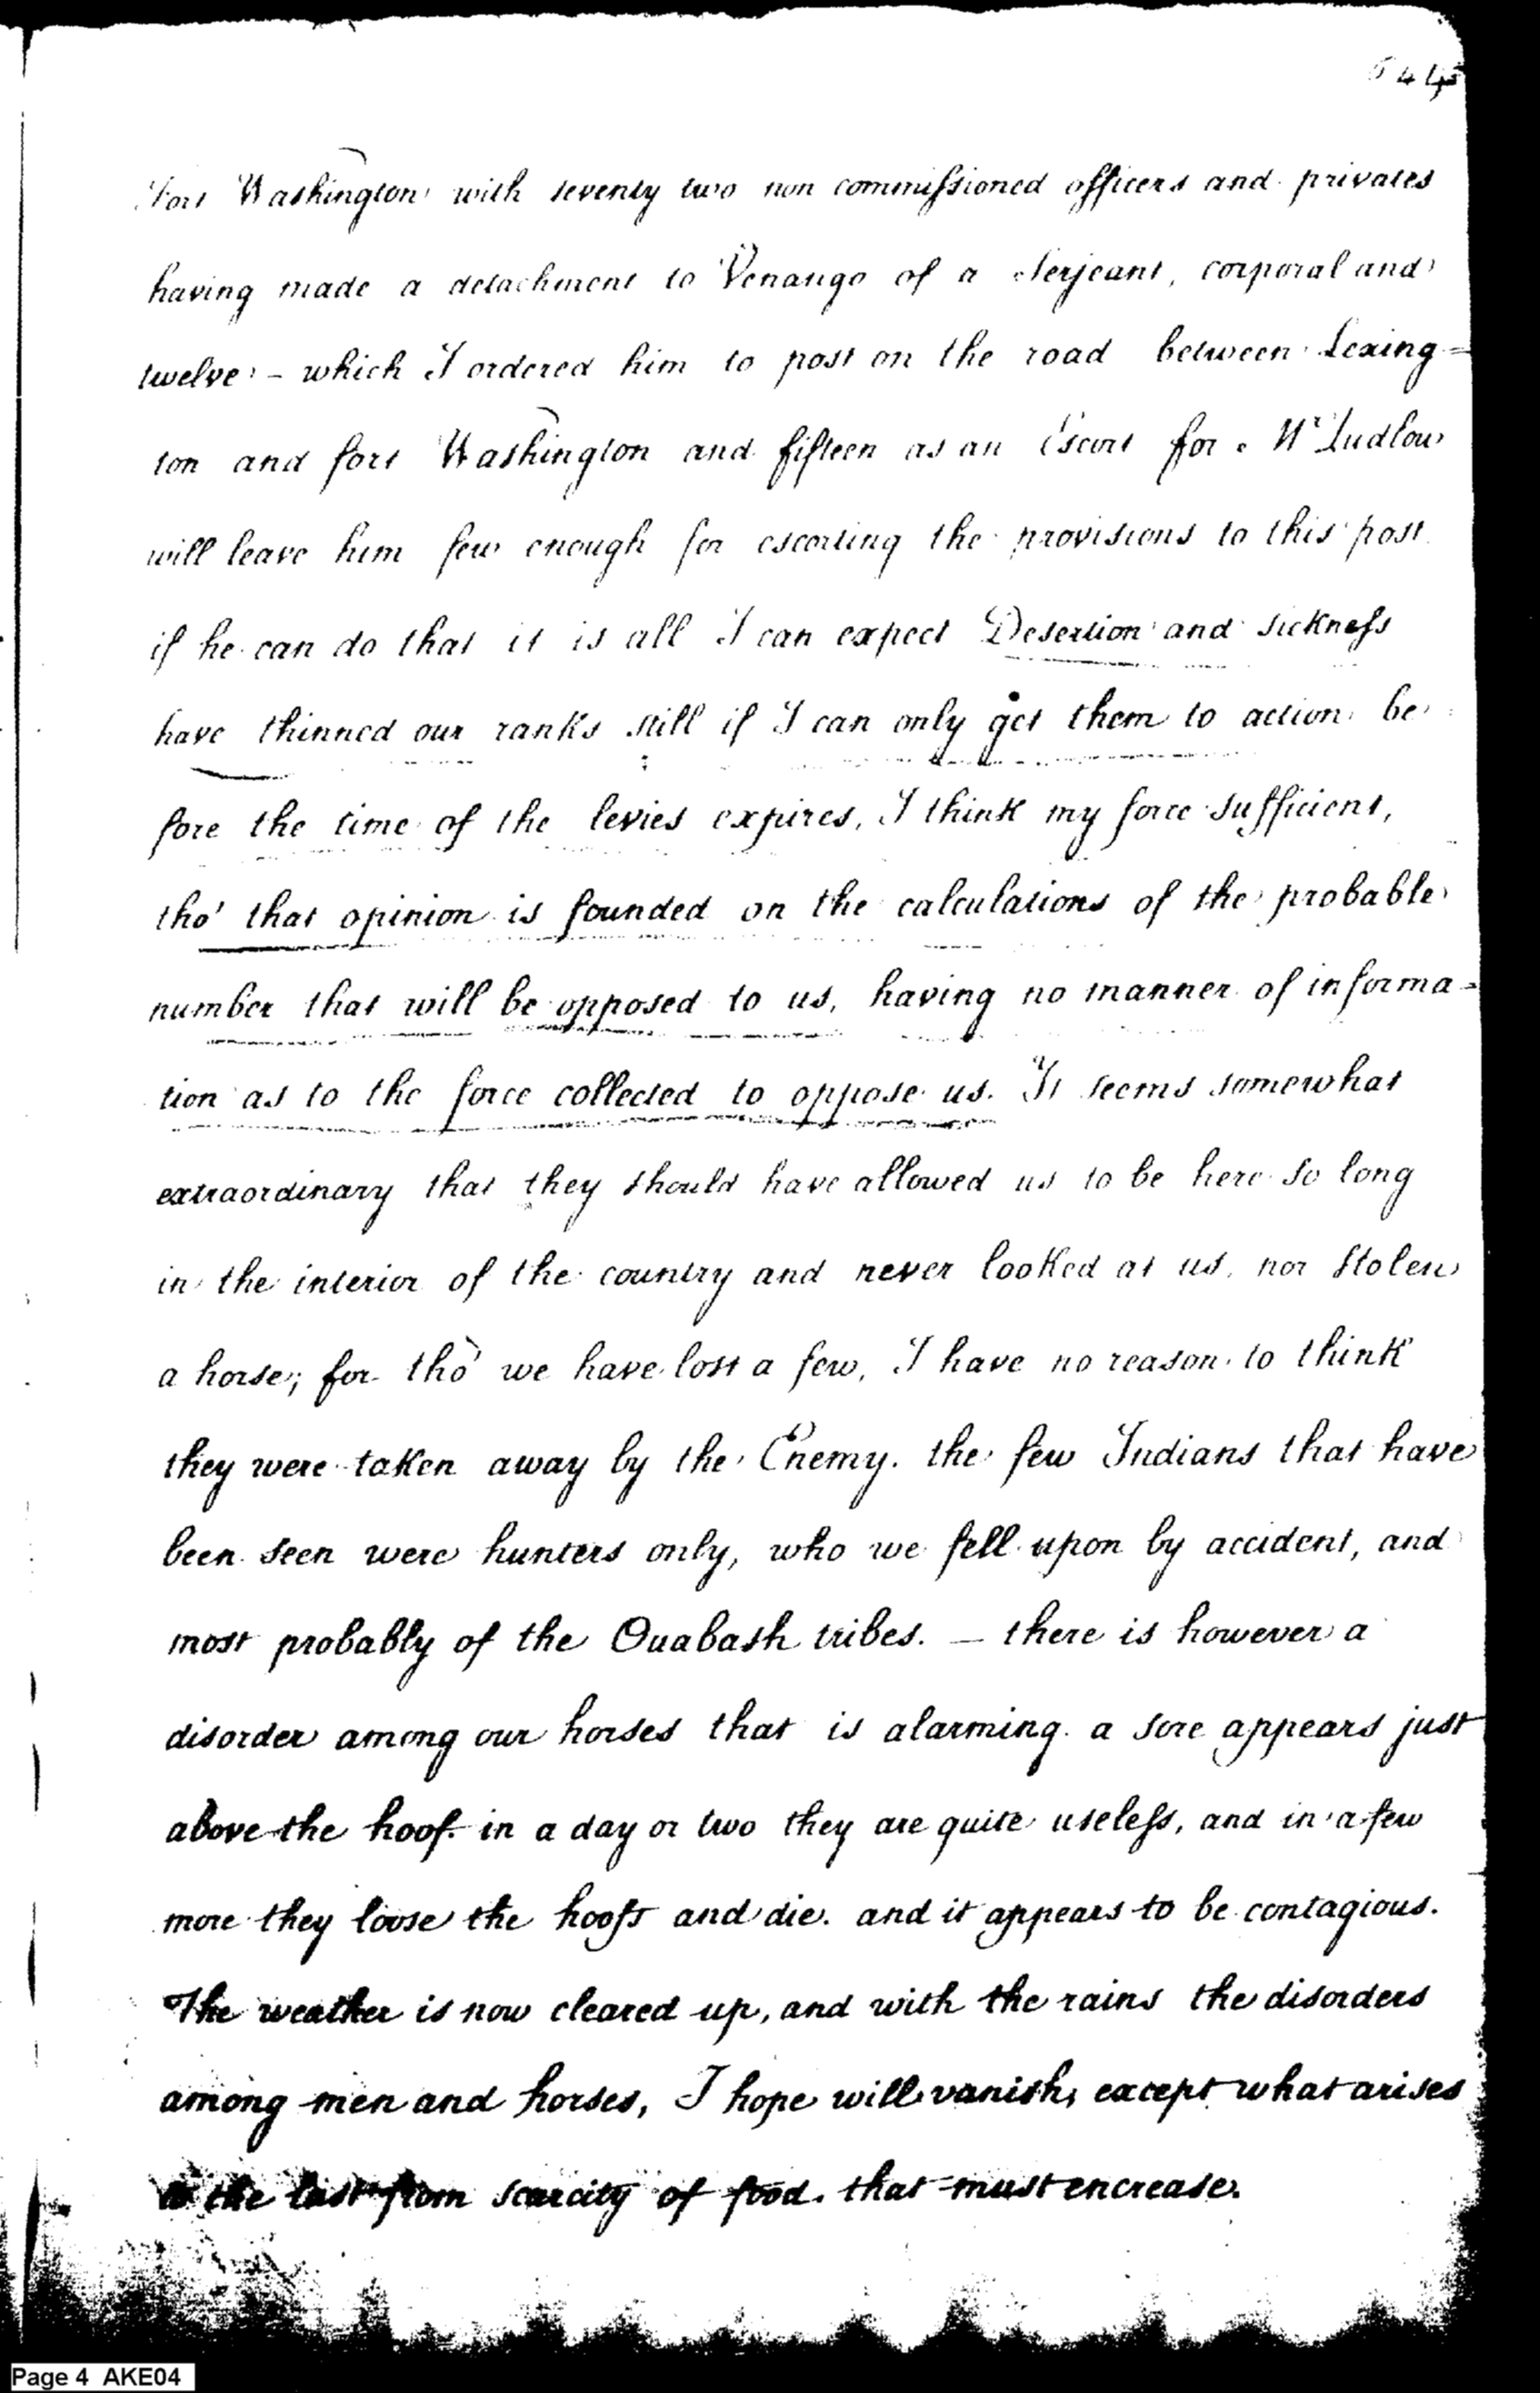 545
Fort Washington with seventy two non commissioned officers and privates
having made a detachment to Venango of a Serjeant, corporal and
twelve – which I ordered him to post on the road between Lexing=
ton and fort Washington and fifteen as an Escort for Mr Ludlow
will leave him few enough for escorting the provisions to this post
if he can do that it is all I can expect Desertion and sickness
have thinned our ranks still if I can only get them to action be=
fore the time of the levies expires, I think my force sufficient,
tho' that opinion is founded on the calculations of the probable
number that will be opposed to us, having no manner of informa=
tion as to the force collected to oppose us. It seems somewhat
extraordinary that they should have allowed us to be here so long
in the interior of the country and never looked at us, nor stolen
a horse; for tho' we have lost a few, I have no reason to think
they were taken away by the Enemy. the few Indians that have
been seen were hunters only, who we fell upon by accident, and
most probably of the Ouabash tribes. — there is however a
disorder among our horses that is alarming. a sore appears just
above the hoof. in a day or two they are quite useless, and in a few
more they loose the hoofs and die. and it appears to be contagious.
The weather is now cleared up, and with the rains the disorders
among men and horses, I hope will vanish, except what arises
to the last from scarcity of food. that must encrease.
Page 4 AKE04